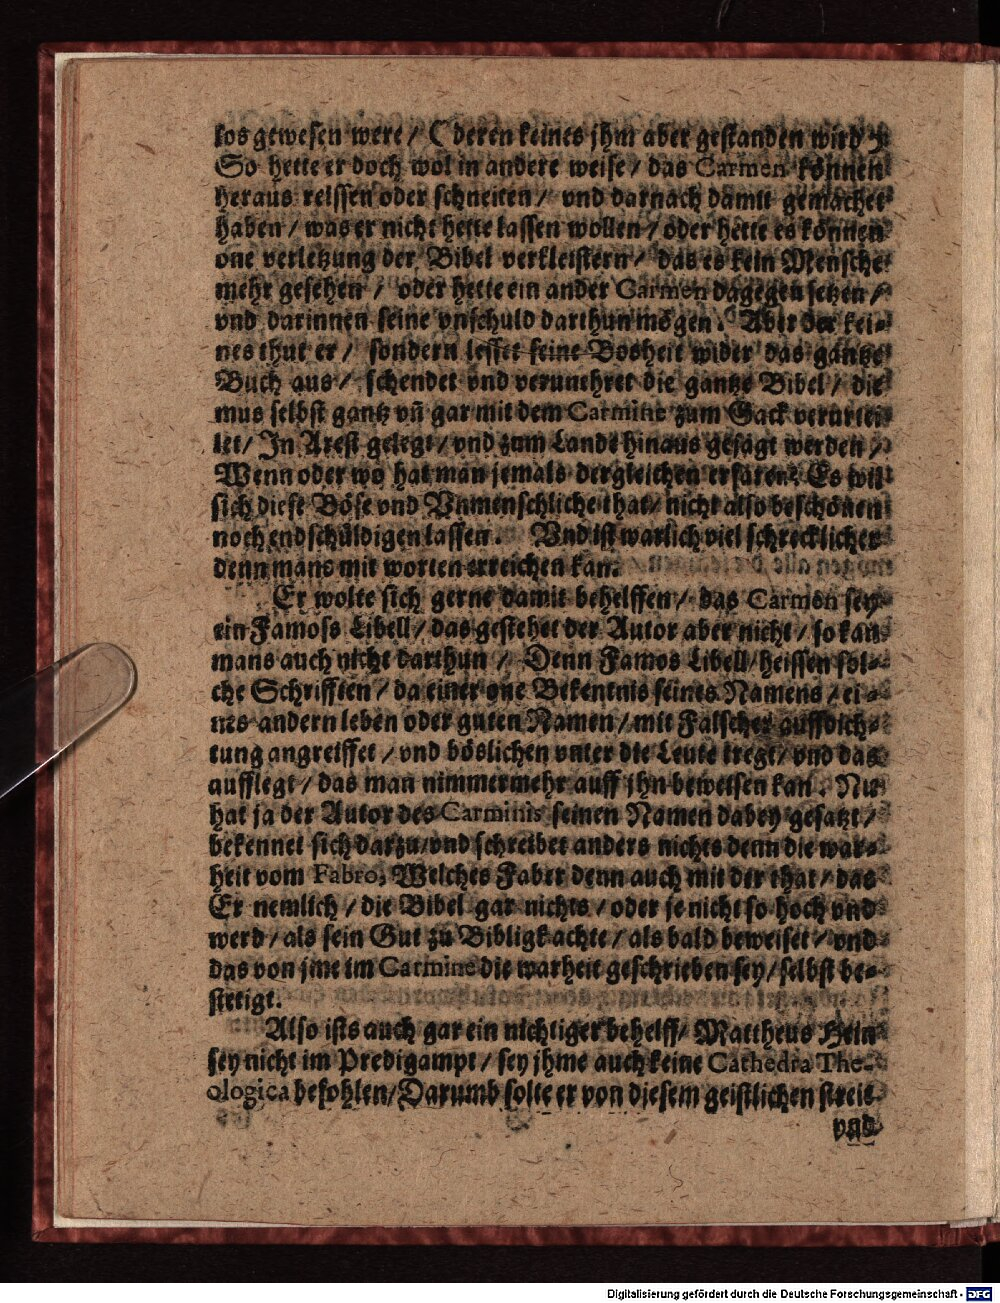 los gewesen were / (deren keines jhm aber gestanden wird)
So hette er doch wol in andere weise / das Carmen können
heraus reissen oder schneiten / vnd darnach damit gemachet
haben / was er nicht hette lassen wollen / oder hette es können
one verletzung der Bibel verkleistern / das es kein Mensche
mehr gesehen / oder hette ein ander Carmen dagegen setzen /
vnd darinnen seine vnschuld darthun mögen. Aber der kei-
nes thut er / sondern lesset seine Bosheit wider das gantze
Buch aus / schendet vnd verunehret die gantze Bibel / die
mus selbst gantz vñ gar mit dem Carmine zum Sack verurtei
let / In Arest gelegt / vnd zum Lande hinaus gesagt werden /
Wenn oder wo hat man jemals dergleichen erfaren? Es wil
sich diese Böse vnd Vnmenschliche that / nicht also beschönen
noch endschüldigen lassen. Vnd ist warlich viel schrecklicher
denn mans mit worten erreichen kan.
Er wolte sich gerne damit behelffen / das Carmen sey
ein Famoss Libell / das gestehet der Autor aber nicht / so kan
mans auch nicht darthun / Denn Famos Libell / heissen sol-
che Schrifften / da einer one Bekentnis seines Namens / ei-
nes andern leben oder guten Namen / mit Falscher auffdich-
tung angreiffet / vnd böslichen vnter die Leute tregt / vnd das
aufflegt / das man nimmermehr auff jhn beweisen kan. Nu
hat ja der Autor des Carminis seinen Namen dabey gesatzt /
bekennet sich darzu / vnd schreibet anders nichts denn die war-
heit vom Fabro, Welches Faber denn auch mit der that / das
Er nemlich / die Bibel gar nichts / oder je nicht so hoch vnd
werd / als sein Gut zu Bibligk achte / als bald beweiset / vnd
das von jme im Carmine die warheit geschrieben sey / selbst be-
stetigt.
Also ists auch gar ein nichtiger behelff / Mattheus Hein
sey nicht im Predigampt / sey jhme auch keine Cathedra The-
ologica befohlen / Darumb solte er von diesem geistlichen streit
vnd
Digitalisierung gefördert durch die Deutsche Forschungsgemeinschaft - DFG